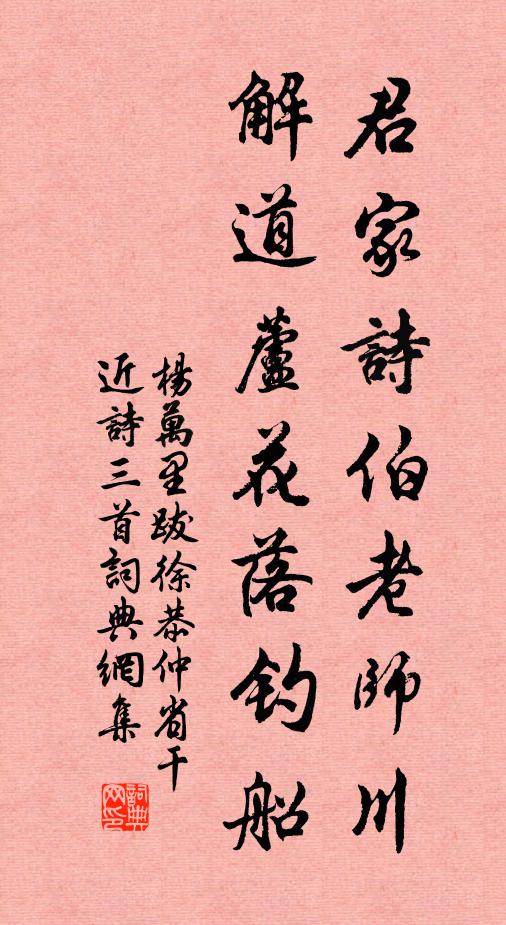 君家詩伯老師川
解道蘆花落釣船
楊萬里跋徐恭仲省干
近詩三首詞典網集
詞典
网印